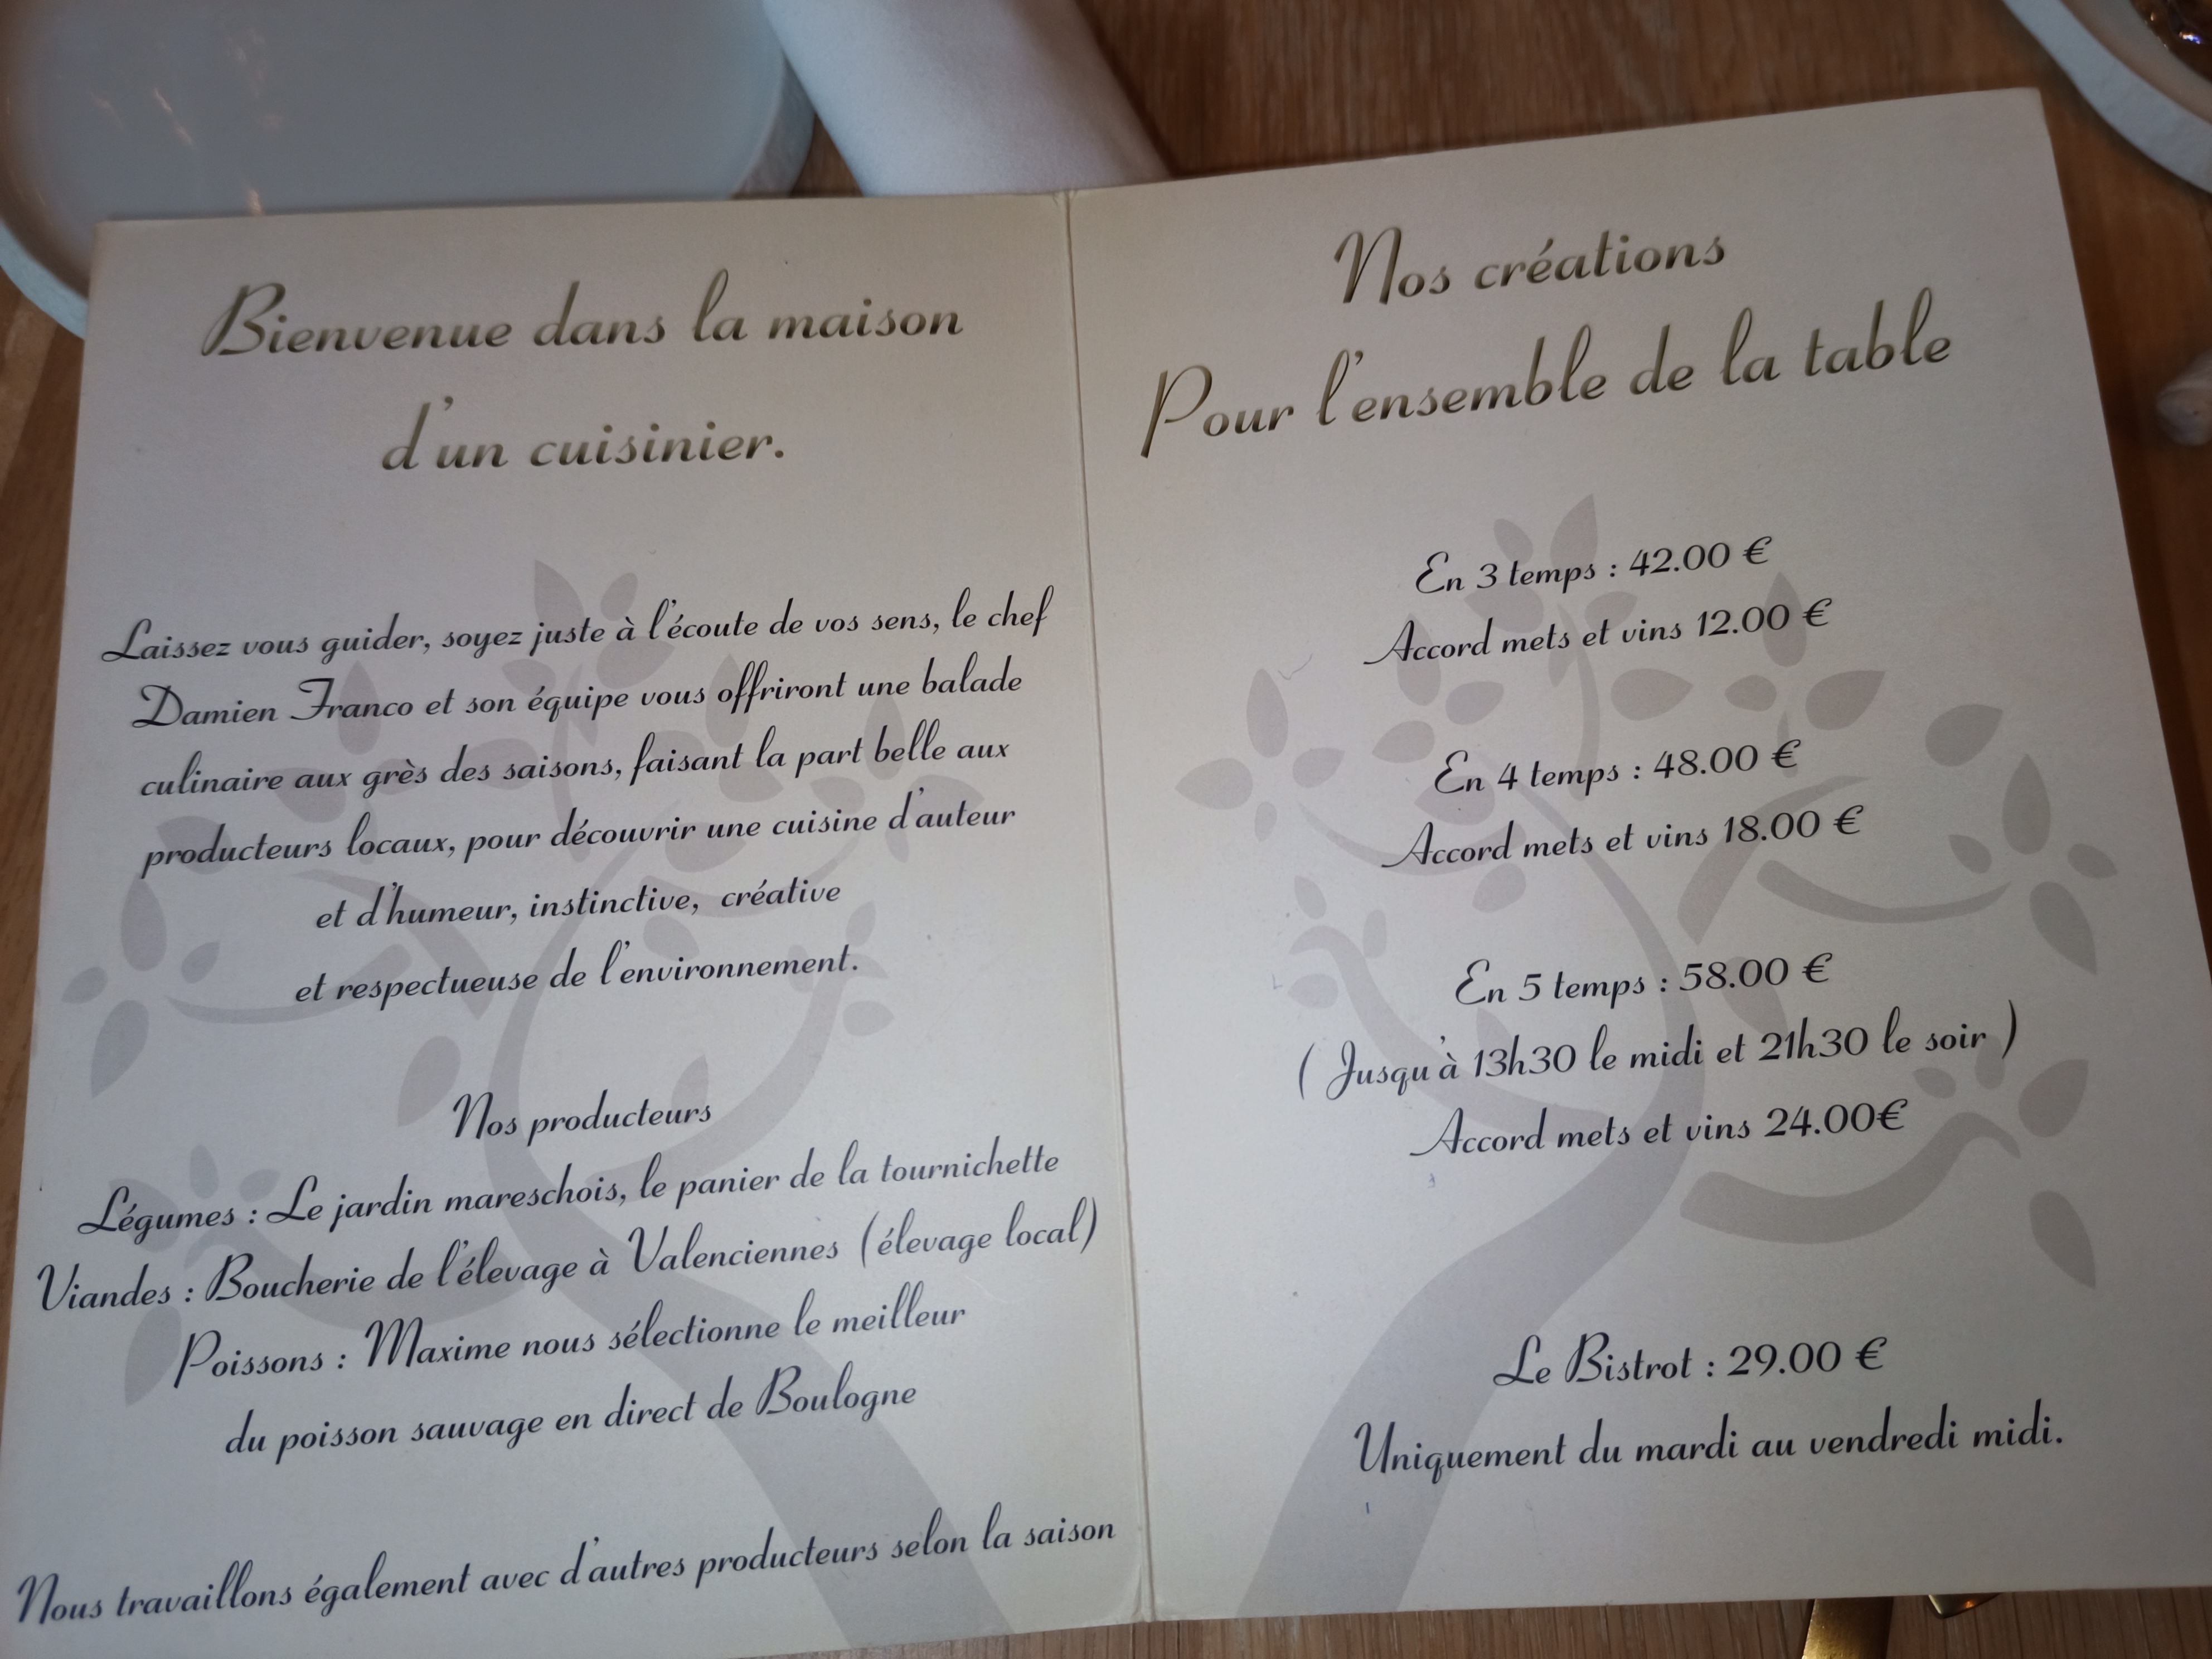 Bienvenue dans la maison
d'un cuisinier.
Laissez vous guider, soyez juste à l'écoute de vos sens, le chef
Damien Franco et son équipe vous offriront une balade
culinaire aux grès des saisons, faisant la part belle aux
producteurs locaux, pour découvrir une cuisine d'auteur
et d'humeur, instinctive, créative
et respectueuse de l'environnement.
Nos producteurs
Légumes : Le jardin mareschois, le panier de la tournichette
Viandes : Boucherie de l'élevage à Valenciennes (élevage local)
Poissons : Maxime nous sélectionne le meilleur
du poisson sauvage en direct de Boulogne
Nous travaillons également avec d'autres producteurs selon la saison
Nos créations
Pour l'ensemble de la table
En 3 temps : 42.00 €
Accord mets et vins 12.00 €
En 4 temps : 48.00 €
Accord mets et vins 18.00 €
En 5 temps : 58.00 €
( Jusqu'à 13h30 le midi et 21h30 le soir )
Accord mets et vins 24.00€
Le Bistrot : 29.00 €
Uniquement du mardi au vendredi midi.